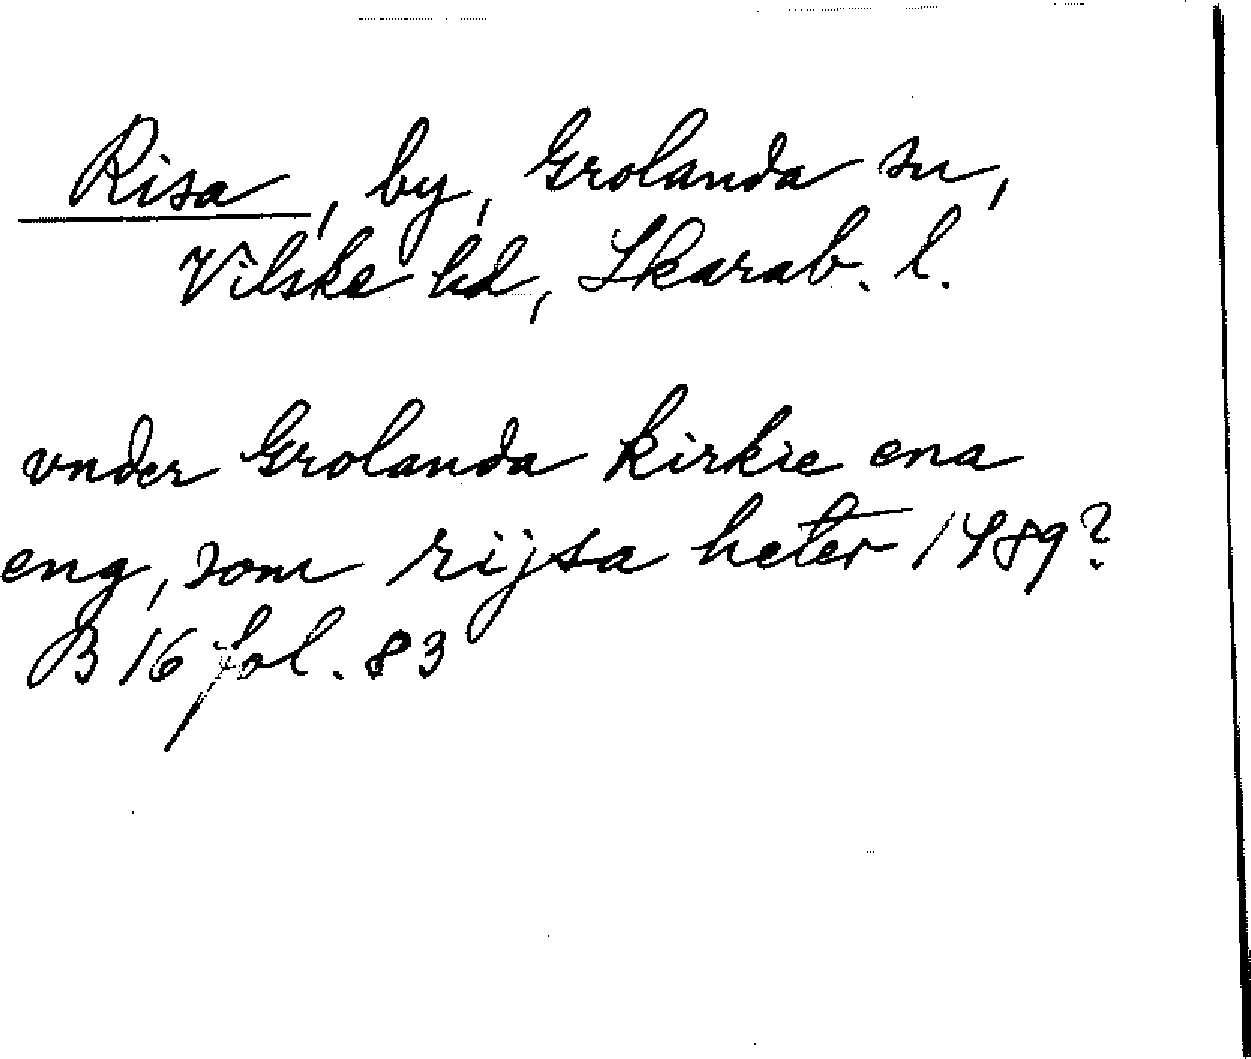 Risa, by, Grolanda sn,
Vilske hd, Skarab. l.
vnder Grolanda kirkie ena
eng, som rijsa heter 1489?
B 16 fol. 83